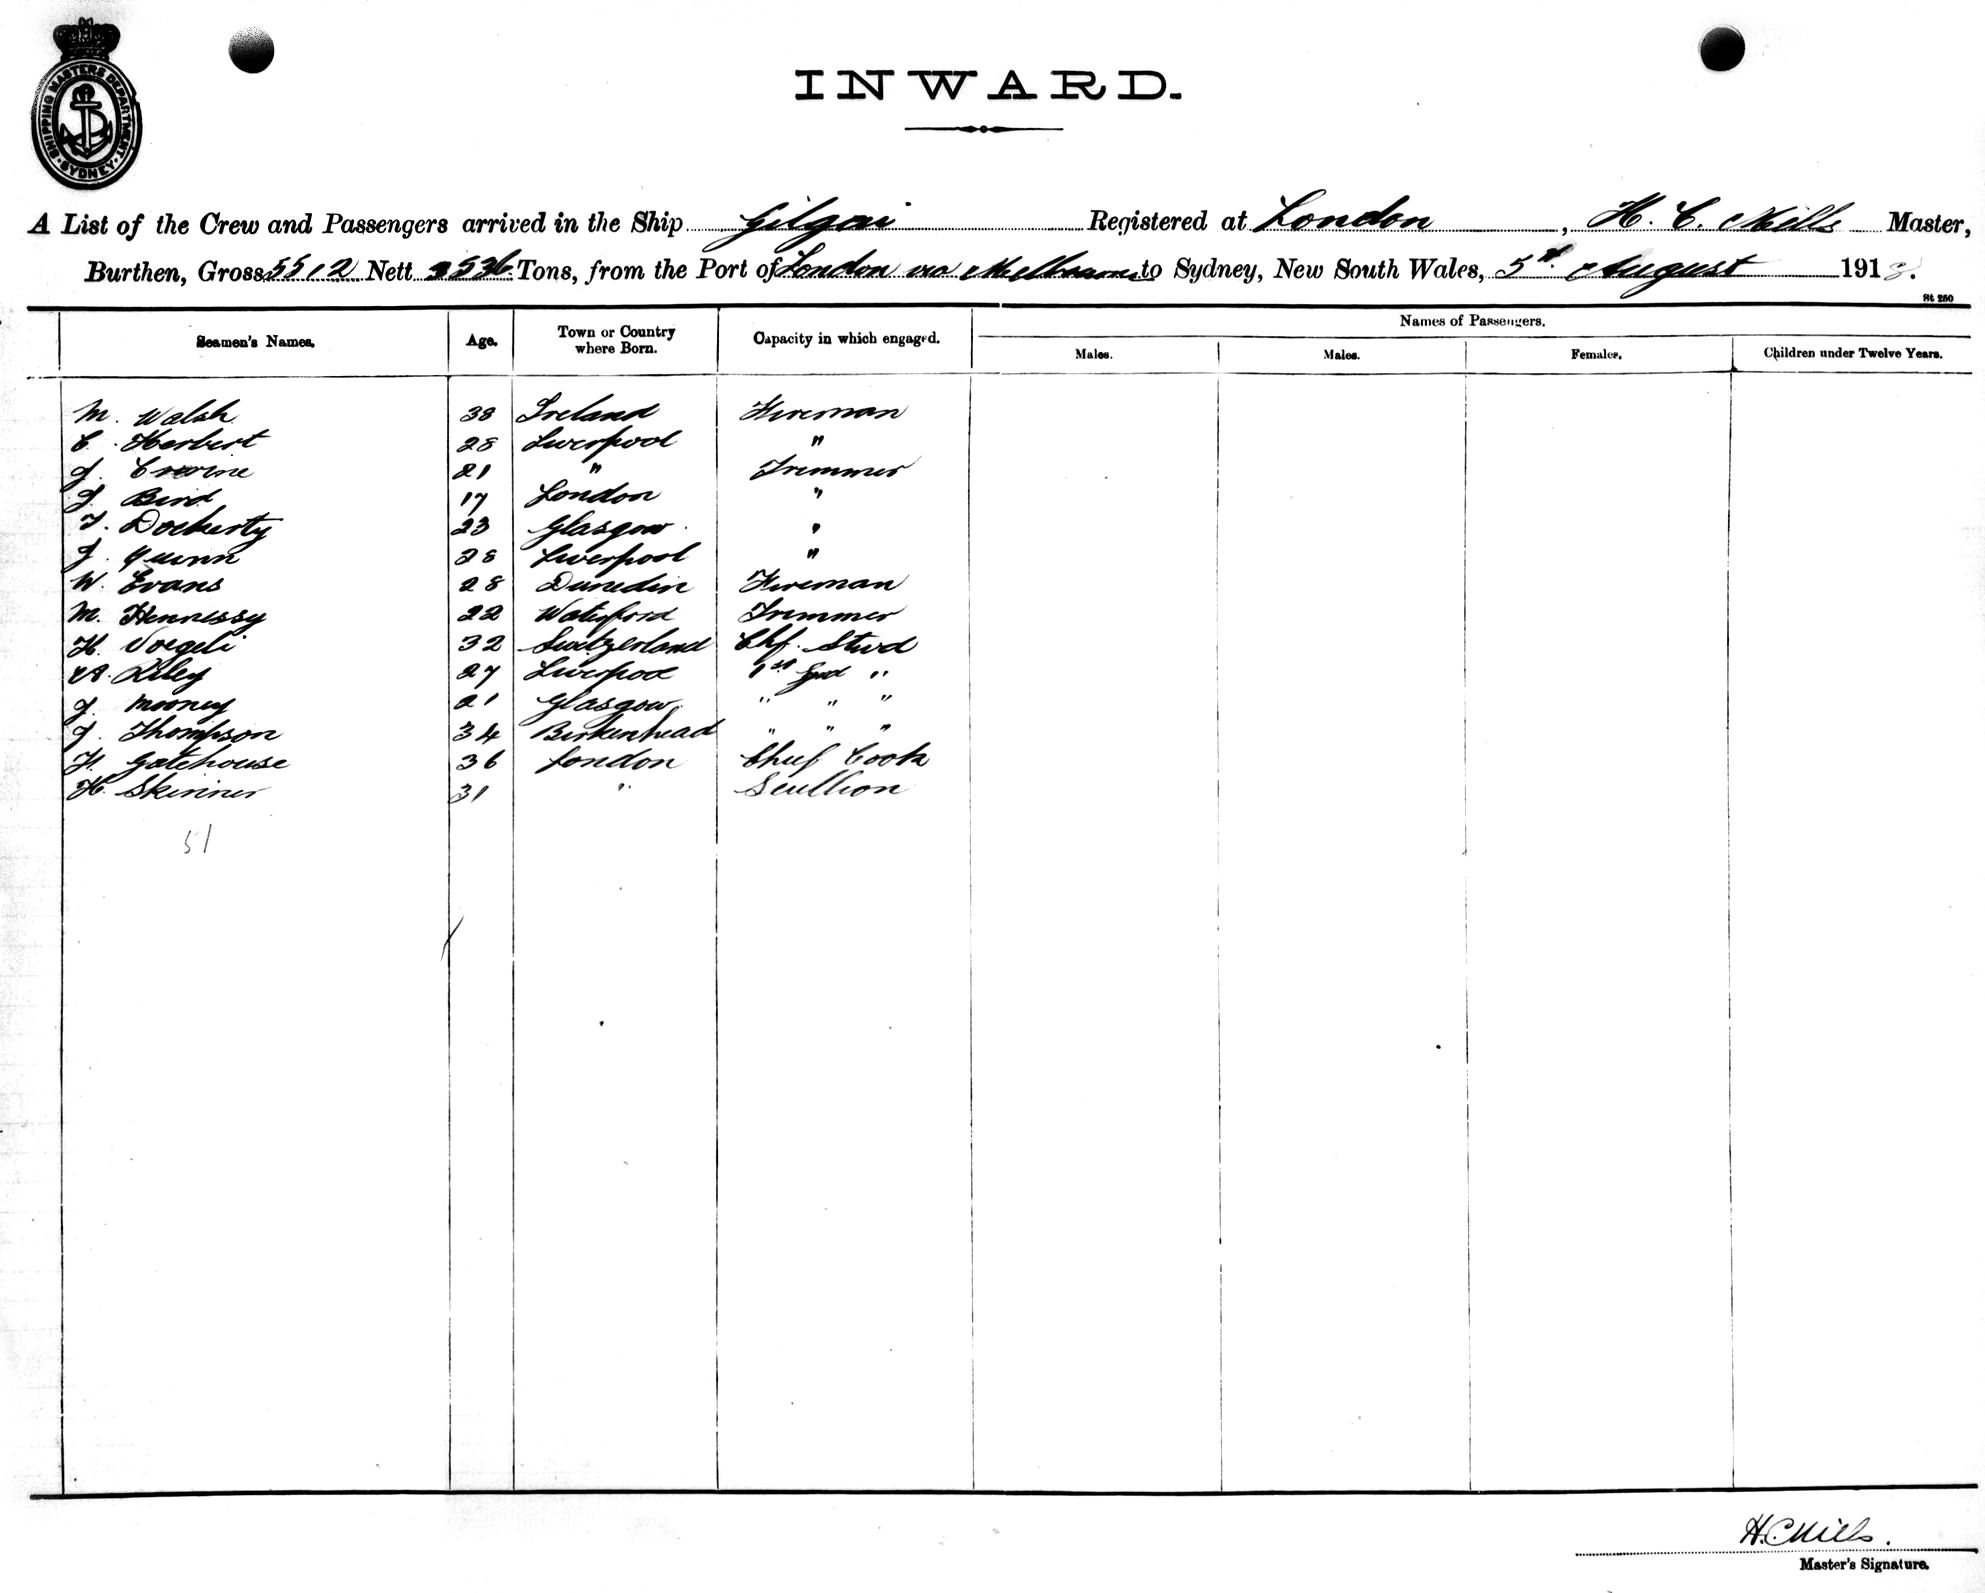 SHIPPING MASTERS DEPARTMENT · SYDNEY ·
INWARD.
A List of the Crew and Passengers arrived in the Ship Gilgai Registered at London, H. C. Mills Master,
Burthen, Gross 5512 Nett 3536 Tons, from the Port of London via Melbourne to Sydney, New South Wales, 5th August 1913.
St 250
Seamen's Names. Age. Town or Country where Born. Capacity in which engaged. Names of Passengers.
Males. Males. Females. Children under Twelve Years.
M. Walsh 38 Ireland Fireman
C. Herbert 28 Liverpool "
J. 21 " Trimmer
J. Bird 17 London "
T. Docherty 23 Glasgow "
J. Quinn 28 Liverpool "
W. Evans 28 Dunedin Fireman
M. Hennessy 22 Waterford Trimmer
H. Voegeli 32 Switzerland Chf. Stwd
Riley 27 Liverpool 1st Grd "
J. Mooney 21 Glasgow " " "
J. Thompson 34 Birkenhead " " "
H. Gatehouse 36 London Chief Cook
H. Skinner 31 " Scullion
51
H. C. Mills.
Master's Signature.